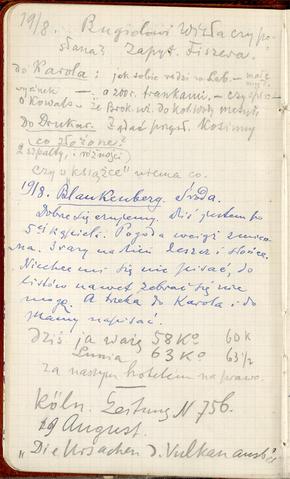 19/8. Bugielowi Wisła czy po-
słana? Zapyt. Fiszera.
do Karola: jak sobie radzi w Lab. — moje
wycinek — a 200 r. frankami. — czy
o Kowals
Do Drukar. Żądać przysł. Kosimy
co złożone?
2 szpalty, różności
Czy o „książce" niema co.
19/8. Blankenberg. Środa.
Dobrze się czujemy. Dziś jestem po
5ej kąpieli. Pogoda wciąż zmien-
na. 3 razy na dzień deszcz i słońce.
Niechce mi się nic pisać, do
listów nawet zebrać się nie
mogę. A trzeba do Karola i do
Mamy napisać.
Dziś ja ważę 58 Ko 60 k
Lunia 63 Ko 63 1/2
za naszym hotelem na prawo.
Köln. Zeitung N 756.
19 August.
„Die Ursachen d. Vulkan